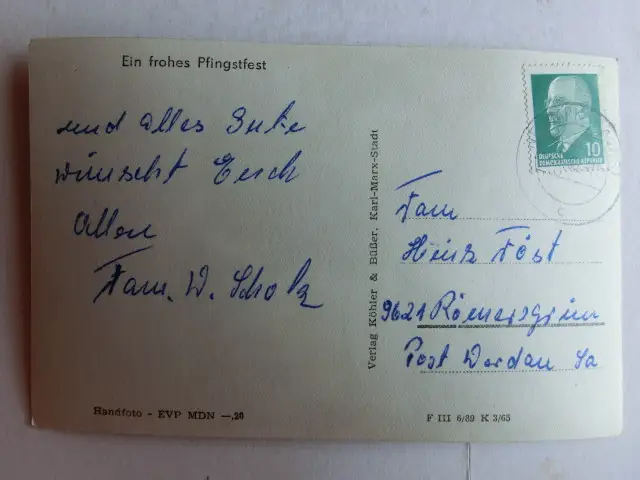 Ein frohes Pfingstfest
und alles Gute
wünscht Euch
allen
Fam. W. Scholz
Verlag Köhler & Büßer, Karl-Marx-Stadt
DEUTSCHE
DEMOKRATISCHE REPUBLIK
10
Fam
Heinz
9621
Post Sa
Handfoto - EVP MDN —,20
F III 6/89 K 3/65